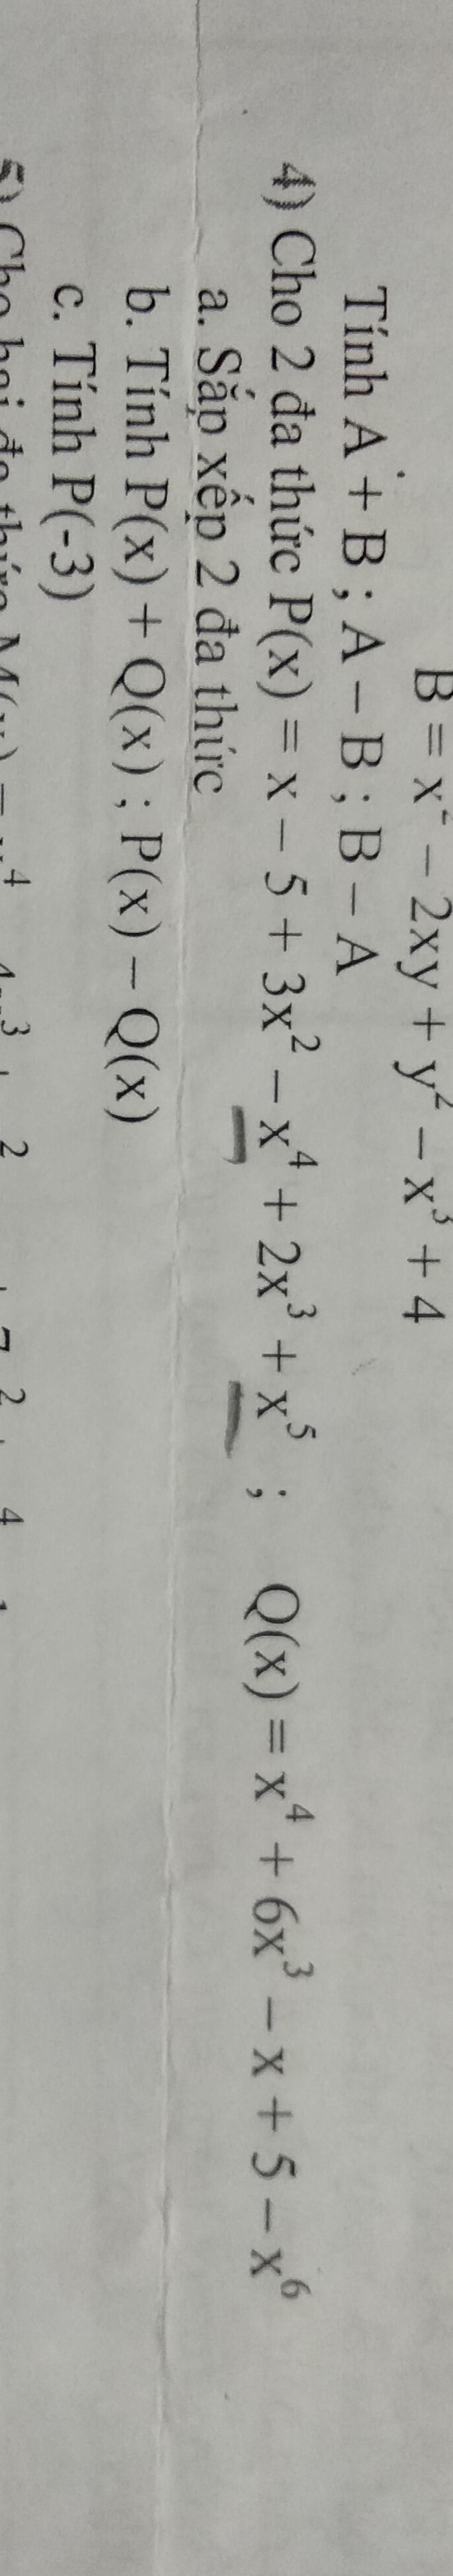 B = x² − 2xy + y² − x³ + 4
Tính A + B ; A − B ; B − A
4) Cho 2 đa thức P(x) = x − 5 + 3x² − x⁴ + 2x³ + x⁵ ; Q(x) = x⁴ + 6x³ − x + 5 − x⁶
a. Sắp xếp 2 đa thức
b. Tính P(x) + Q(x) ; P(x) − Q(x)
c. Tính P(-3)
5) Cho hai đa thức M(x) =